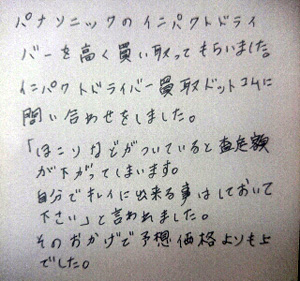 パナソニックのインパクトドライ
バーを高く買い取ってもらいました。
インパクトドライバー買取ドットコムに
問い合わせをしました。
「ほこりなどがついていると査定額
が下がってしまいます。
自分でキレイに出来る事はしておいて
下さい」と言われました。
そのおかげで予想価格よりも上
でした。